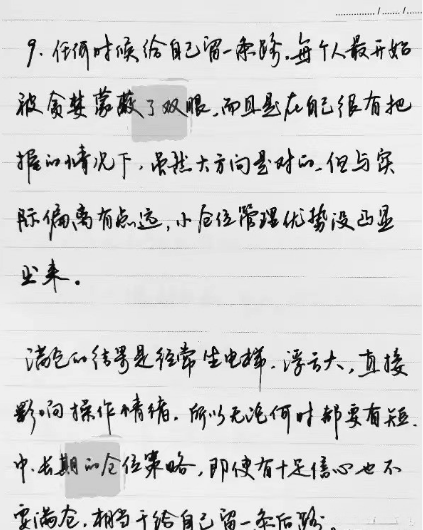 9. 任何时候给自己留一条路,每个人最开始
被贪婪蒙蔽了双眼,而且是在自己很有把
握的情况下,虽然大方向是对的,但与实
际偏离有点远,小仓位管理优势没凸显
出来。
满仓的结果是经常坐电梯,浮亏大,直接
影响操作情绪,所以无论何时都要有短.
中.长期的仓位策略,即使有十足信心也不
要满仓,相当于给自己留一条后路。